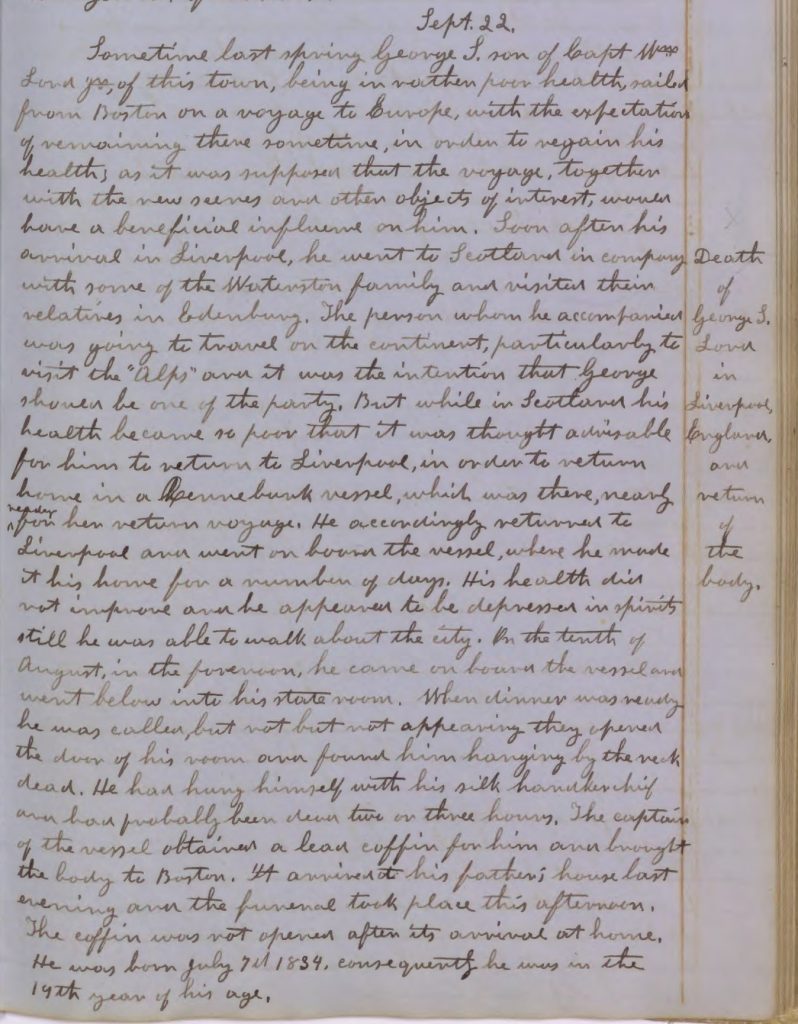 Sept. 22.
Sometime last spring George S. son of Capt Wm
Lord jr, of this town, being in rather poor health, sailed
from Boston on a voyage to Europe, with the expectation
of remaining there sometime, in order to regain his
health; as it was supposed that the voyage, together
with the new scenes and other objects of interest, would
have a beneficial influence on him. Soon after his
arrival in Liverpool, he went to Scotland in company
with some of the Waterston family and visited their
relatives in Edenburg. The person whom he accompanied
was going to travel on the continent, particularly to
visit the "Alps" and it was the intention that George
should be one of the party. But while in Scotland his
health became so poor that it was thought advisable
for him to return to Liverpool, in order to return
home in a Kennebunk vessel, which was there, nearly
ready
for her return voyage. He accordingly returned to
Liverpool and went on board the vessel, where he made
it his home for a number of days. His health did
not improve and he appeared to be depressed in spirits
still he was able to walk about the city. On the tenth of
August, in the forenoon, he came on board the vessel and
went below into his state room. When dinner was ready
he was called, but not but not appearing they opened
the door of his room and found him hanging by the neck
dead. He had hung himself with his silk handkerchif
and had probably been dead two or three hours. The captain
of the vessel obtained a lead coffin for him and brought
the body to Boston. It arrived at his father's house last
evening and the funeral took place this afternoon.
The coffin was not opened after its arrival at home.
He was born July 7th 1834. consequently he was in the
19th year of his age.
Death
of
George S.
Lord
in
Liverpool,
England,
and
return
of
the
body.